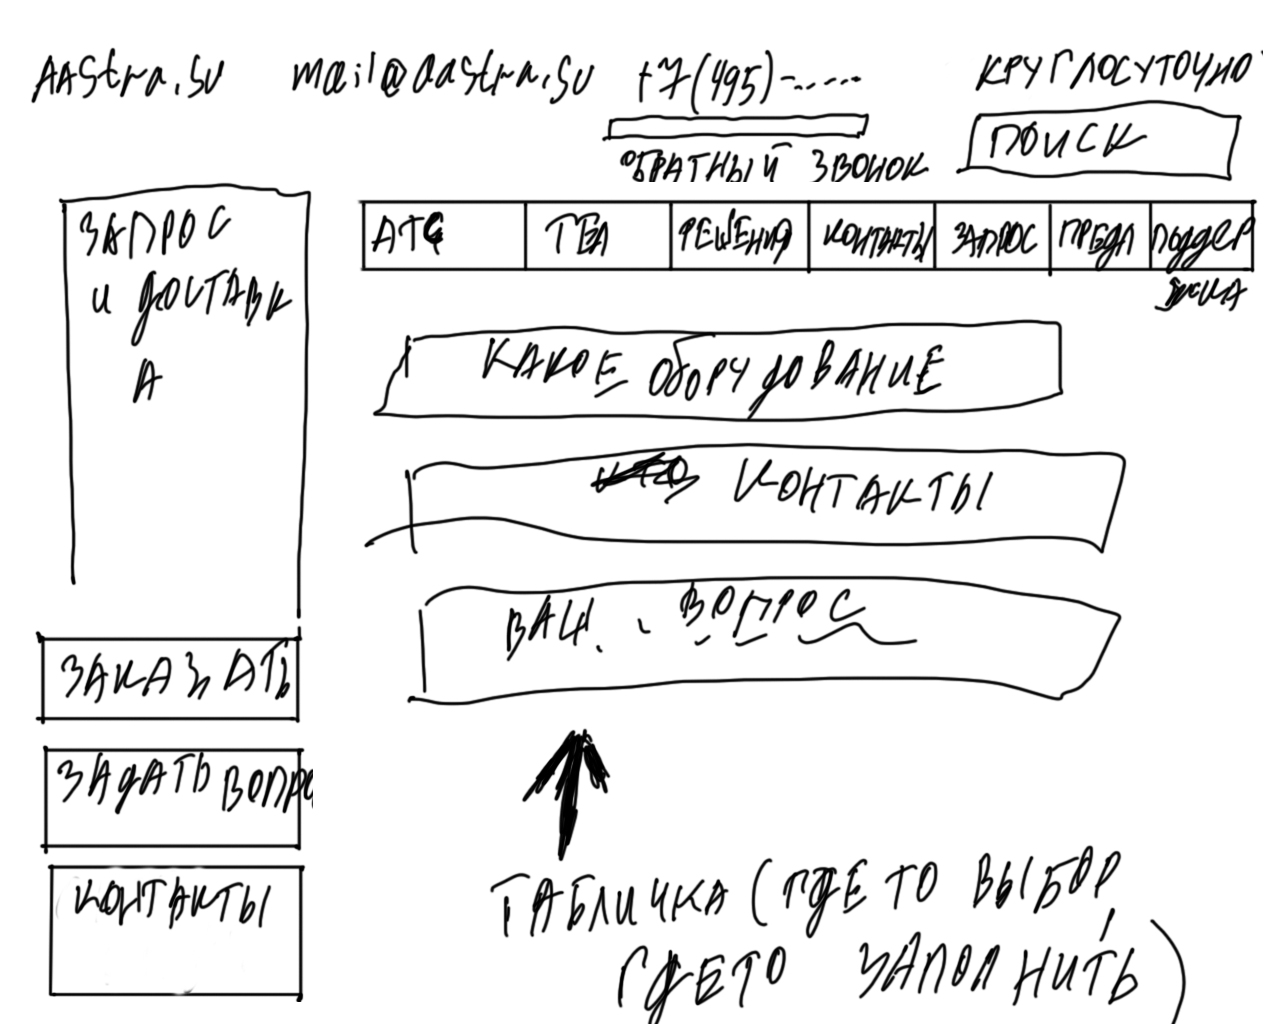 AAstra.su mail@aastra.su +7(495)-...... КРУГЛОСУТОЧНО
ОБРАТНЫЙ ЗВОНОК
ПОИСК
АТС ТЕЛ РЕШЕНИЯ КОНТАКТЫ ЗАПРОС ПРЕДЛ ПОДДЕР
ЖКА
ЗАПРОС
И ДОСТАВК
А
КАКОЕ ОБОРУДОВАНИЕ
КОНТАКТЫ
ВАШ ВОПРОС
ЗАКАЗАТЬ
ЗАДАТЬ ВОПРО
КОНТАКТЫ
ТАБЛИЧКА (ГДЕ ТО ВЫБОР,
ГДЕ ТО ЗАПОЛНИТЬ)